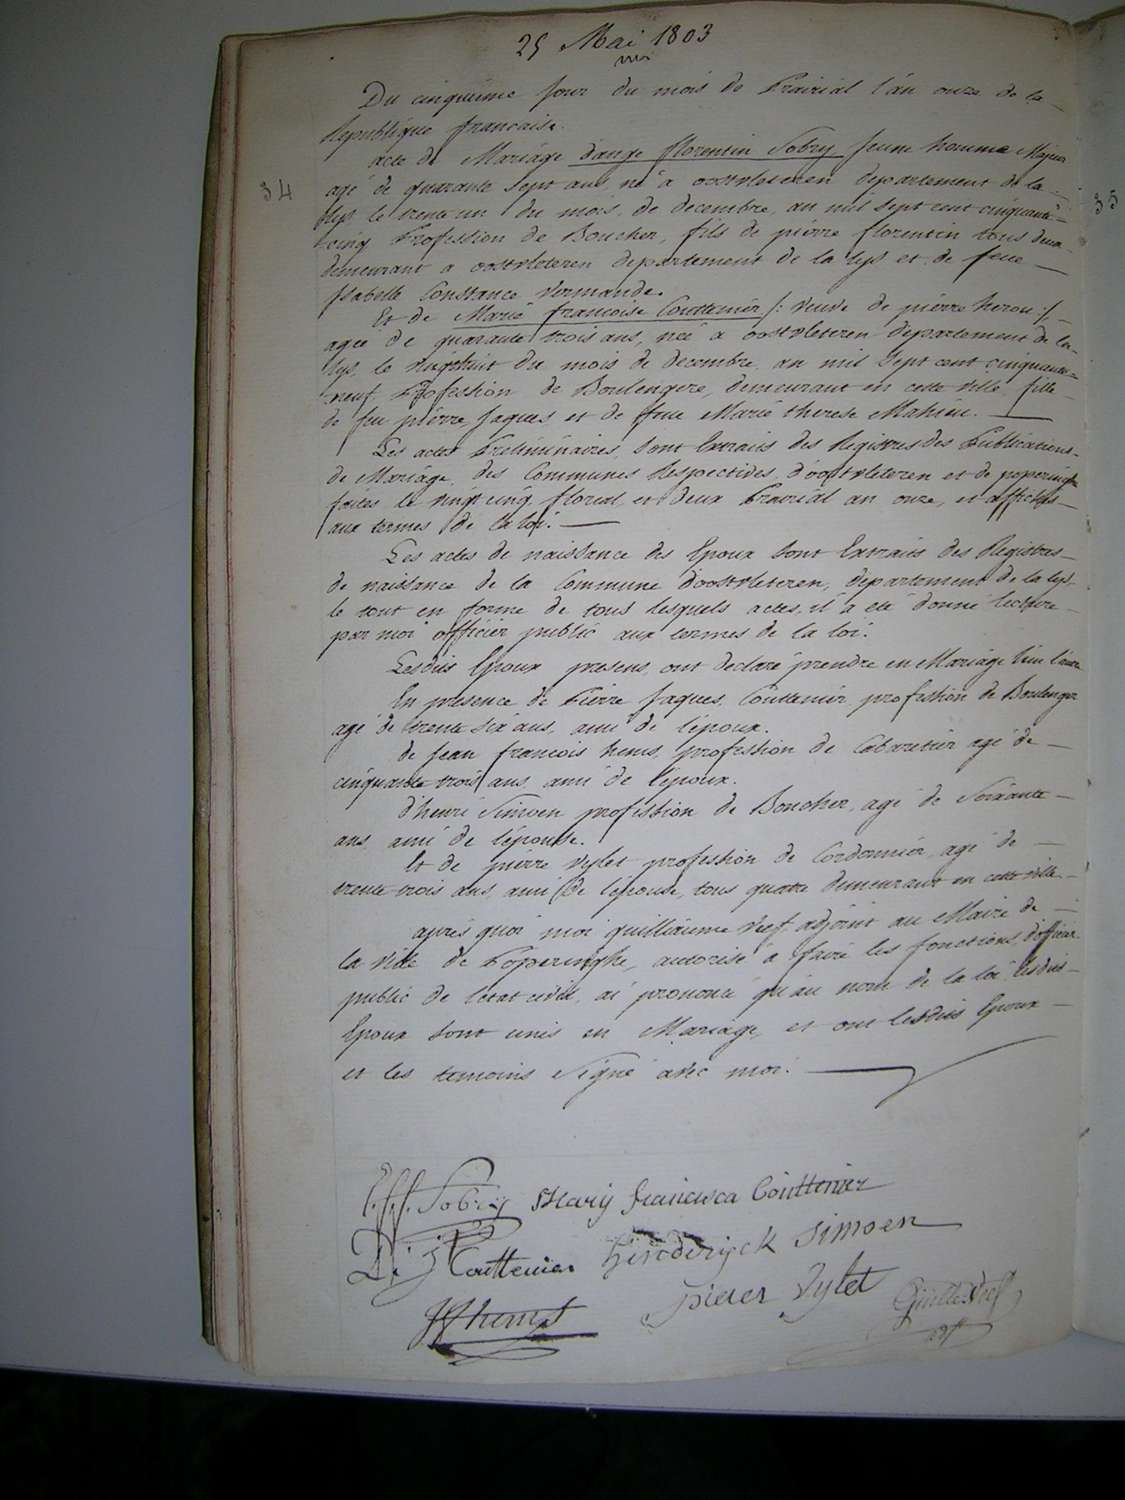 25 Mai 1803
Du cinquieme jour du mois de Prairial l'an onze de la
Republique francaise.
acte de Mariage d'ange florentin Sobry jeune homme Majeur
34
agé de quarante sept ans, né a oostvleteren departement de la
35
Lys le trente un du mois de decembre, an mil sept cent cinquante
cinq Profession de Boucher, fils de pierre florentin tous deux
demeurant a oostvleteren departement de la lys et de feue
Isabelle Constance Vermande.
Et de Marie francoise Couttenier /: veuve de pierre herou :/
agée de quarante trois ans, née a oostvleteren departement de la
lys, le vingthuit du mois de decembre an mil sept cent cinquante
neuf Profession de Boulengere, demeurant en cette ville, fille
de feu pierre Jaques et de feue Marie therese Mahieu.
Les actes Preliminaires sont Extraits des Registres des Publications
de Mariage des Communes Respectives d'oostvleteren et de poperinghe
faites le vingt cinq floreal et deux Prairial an onze, et affichés
aux termes de la loi.
Les actes de naissance des Epoux sont Extraits des Registres
de naissance de la Commune d'oostvleteren, departement de la lys
le tout en forme de tous lesquels actes, il a été donné lecture
par moi officier public aux termes de la loi.
Lesdits Epoux presens, ont declaré prendre en Mariage l'un l'autre
En presence de Pierre Jaques Couttenier profession de Boulenger
agé de trente six ans, ami de l'epoux.
de Jean francois hems profession de Cabaretier agé de
cinquante trois ans ami de l'epoux.
d'henri Simoen profession de Boucher, agé de Soixante
ans ami de l'epouse.
Et de pierre Vylet profession de Cordonnier agé de
trente trois ans, ami de l'epouse, tous quatre demeurant en cette ville
après quoi moi guilliaume Vief adjoint au Maire de
la ville de Poperinghe, autorisé a faire les fonctions d'officier
public de l'etat civil, ai prononcé qu'au nom de la loi lesdits
Epoux sont unis en Mariage, et ont lesdits Epoux
et les temoins Signé avec moi.
Sobry Marij francisca Couttenier
Couttenier henderijck Simoen
JFhems pieter Vylet Guille Vief
adjt